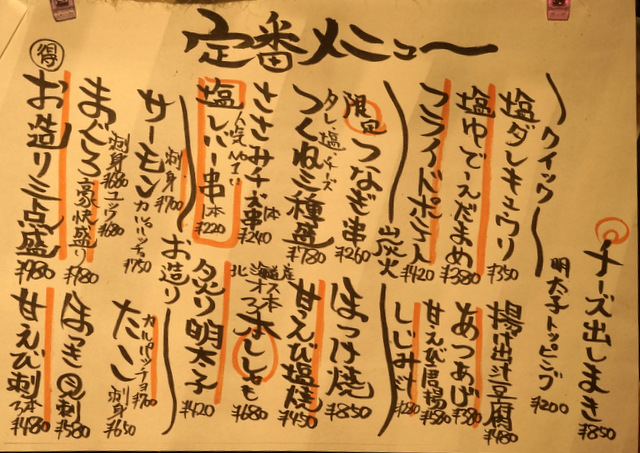 定番メニュー
チーズ出しまき ¥850
明太子トッピング ¥200
クイック
塩ダレキュウリ ¥350
塩ゆでえだまめ ¥380
フライドポテト ¥420
揚げ出汁豆腐 ¥480
あつあげ ¥380
甘えび唐揚 ¥580
しじみ汁
炭火
限定 つなぎ串 ¥260
タレ・塩・チーズ
つくね三種盛 ¥780
ささみチーズ串 1本 ¥240
人気No.1!!
塩レバー串 1本 ¥220
ほっけ焼 ¥850
甘えび塩焼 ¥450
北海道産
オス2本
本ししゃも ¥680
炙り明太子 ¥420
お造り
サーモン 刺身 ¥700
カルパッチョ ¥750
まぐろ 刺身 ¥680 ユッケ ¥680
豪快盛り ¥780
得 お造り三点盛 ¥980
たこ カルパッチョ ¥700
刺身 ¥650
ほっき貝刺 ¥580
甘えび刺 3本 ¥480